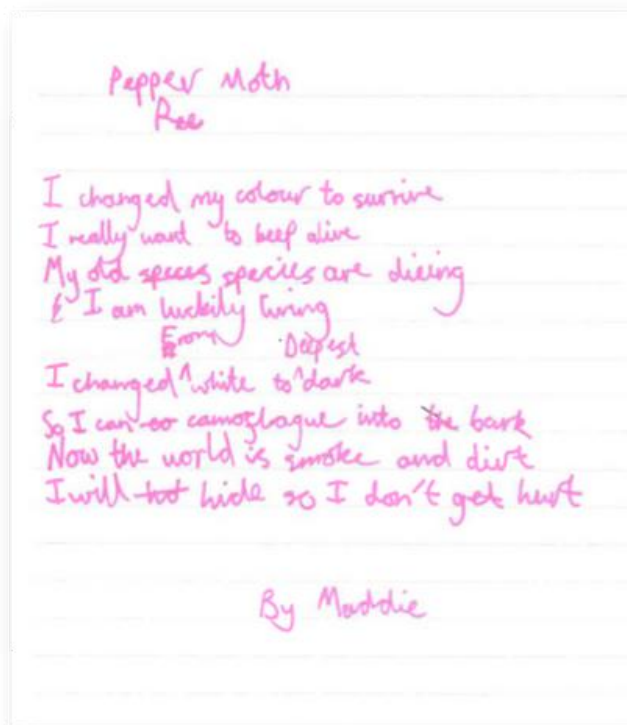 Pepper Moth
Ree
I changed my colour to survive
I really want to keep alive
My old speces species are dieing
& I am luckily living
From Deepest
I changed ^ white to ^ dark
So I can so camoflague into the bark
Now the world is smoke and dirt
I will hot hide so I don't get hurt
By Maddie